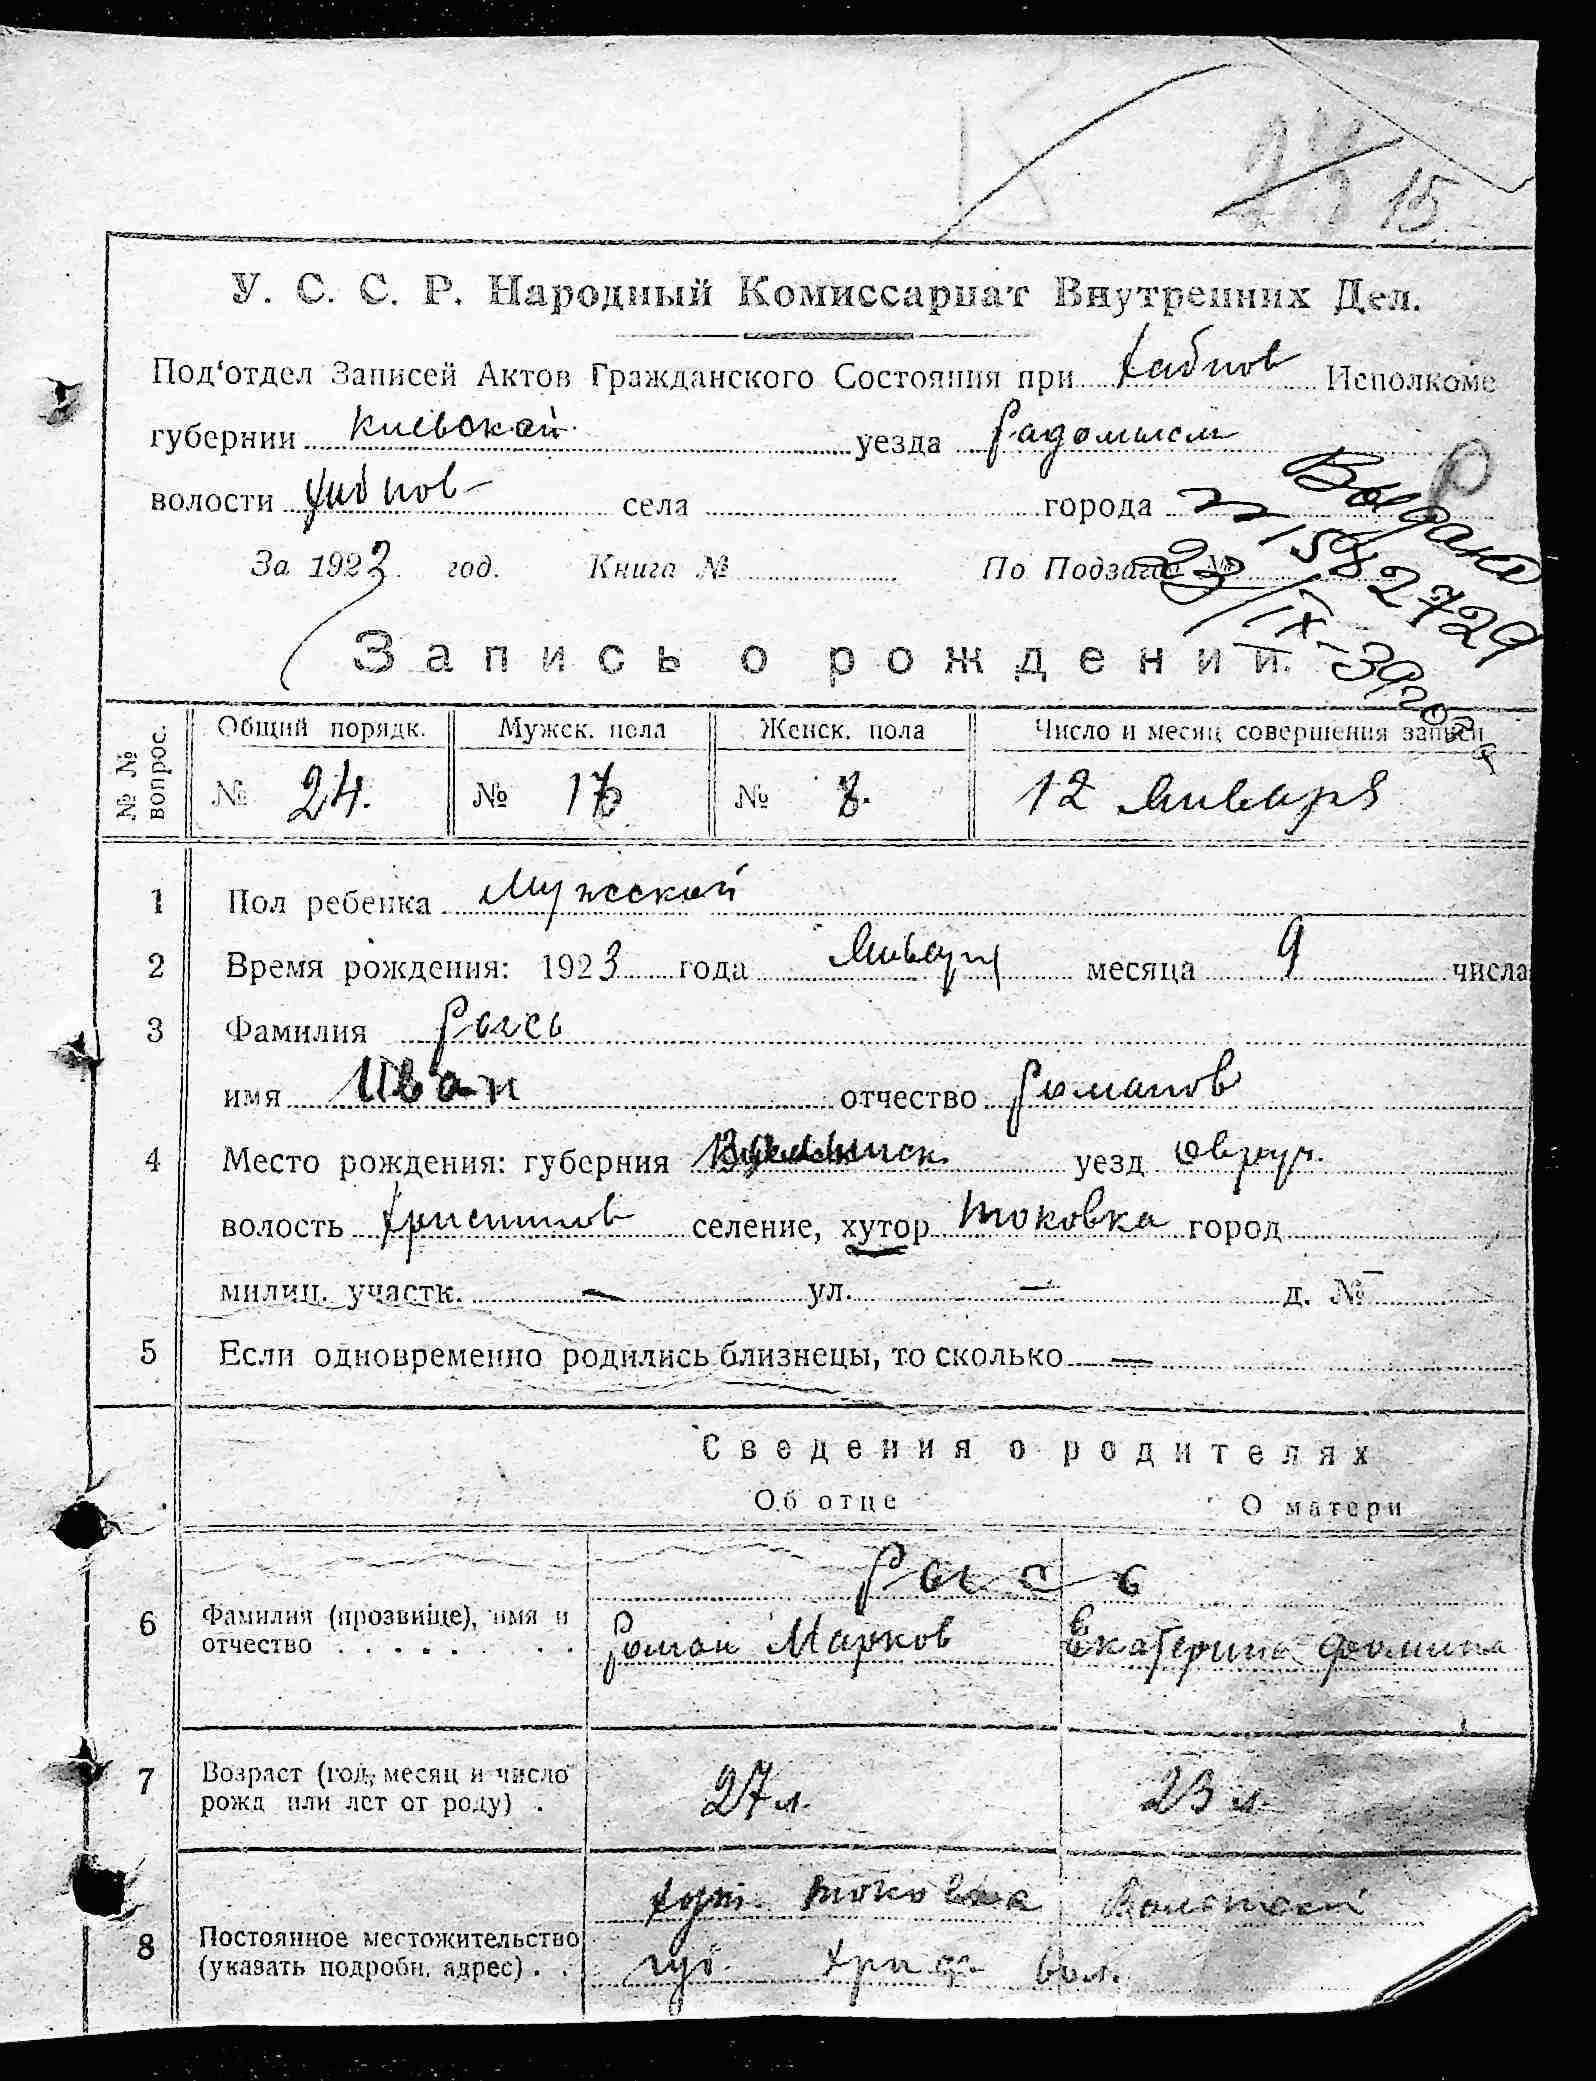 15
У. С. С. Р. Народный Комиссариат Внутренних Дел.
Под'отдел Записей Актов Гражданского Состояния при Хабнов Исполкоме
губернии Киевской уезда Радомысл
волости Хабнов села города
Выдана
1582729
23/IX-39 года
За 1923 год. Книга № По Подзагс №
Запись о рождении.
№ № вопрос. Общий порядк. Мужск. пола Женск. пола Число и месяц совершения записи
№ 24. № 16 № 8. 12 Января
1 Пол ребенка Мужской
2 Время рождения: 1923 года Января месяца 9 числа
3 Фамилия Рысь
имя Иван отчество Романов
4 Место рождения: губерния уезд Овруч.
волость Христинов селение, хутор Токовка город
милиц. участк. — ул. — д. № —
5 Если одновременно родились близнецы, то сколько —
Сведения о родителях
Об отце О матери
Рысь
6 Фамилия (прозвище), имя и
отчество . . . . . . . Роман Марков Екатерина Фомина
7 Возраст (год, месяц и число
рожд или лет от роду) . 27 л. 23 л.
хут. Токовка Волынской
8 Постоянное местожительство
(указать подробн. адрес) . . губ. Христ вол.